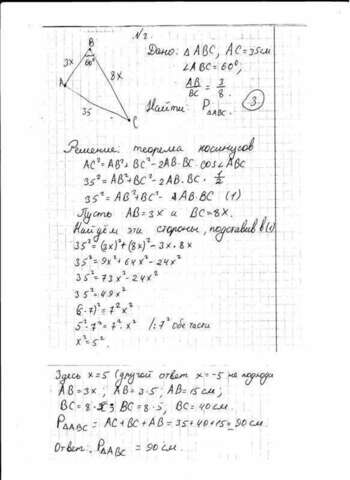 №2.
B
3x 60° 8x
A
35
C
Дано: △ABC, AC=35см
∠ABC=60°;
AB/BC = 3/8.
Найти: P△ABC.
3.
Решение: теорема косинусов
AC²=AB²+BC²-2AB·BC·cos∠ABC
35²=AB²+BC²-2AB·BC·1/2
35²=AB²+BC²- AB·BC (1)
Пусть AB=3x и BC=8x.
Найдём эти стороны, подставив в (1)
35²=(3x)²+(8x)²-3x·8x
35²=9x²+64x²-24x²
35²=73x²-24x²
35²=49x²
(5·7)²=7²x²
5²·7²=7²·x² /:7² обе части
x²=5².
Здесь x=5 (другой ответ x=-5 не подходи
AB=3x; AB=3·5; AB=15см;
BC=8·x; BC=8·5; BC=40см.
P△ABC = AC+BC+AB=35+40+15=90см.
Ответ: P△ABC = 90см.